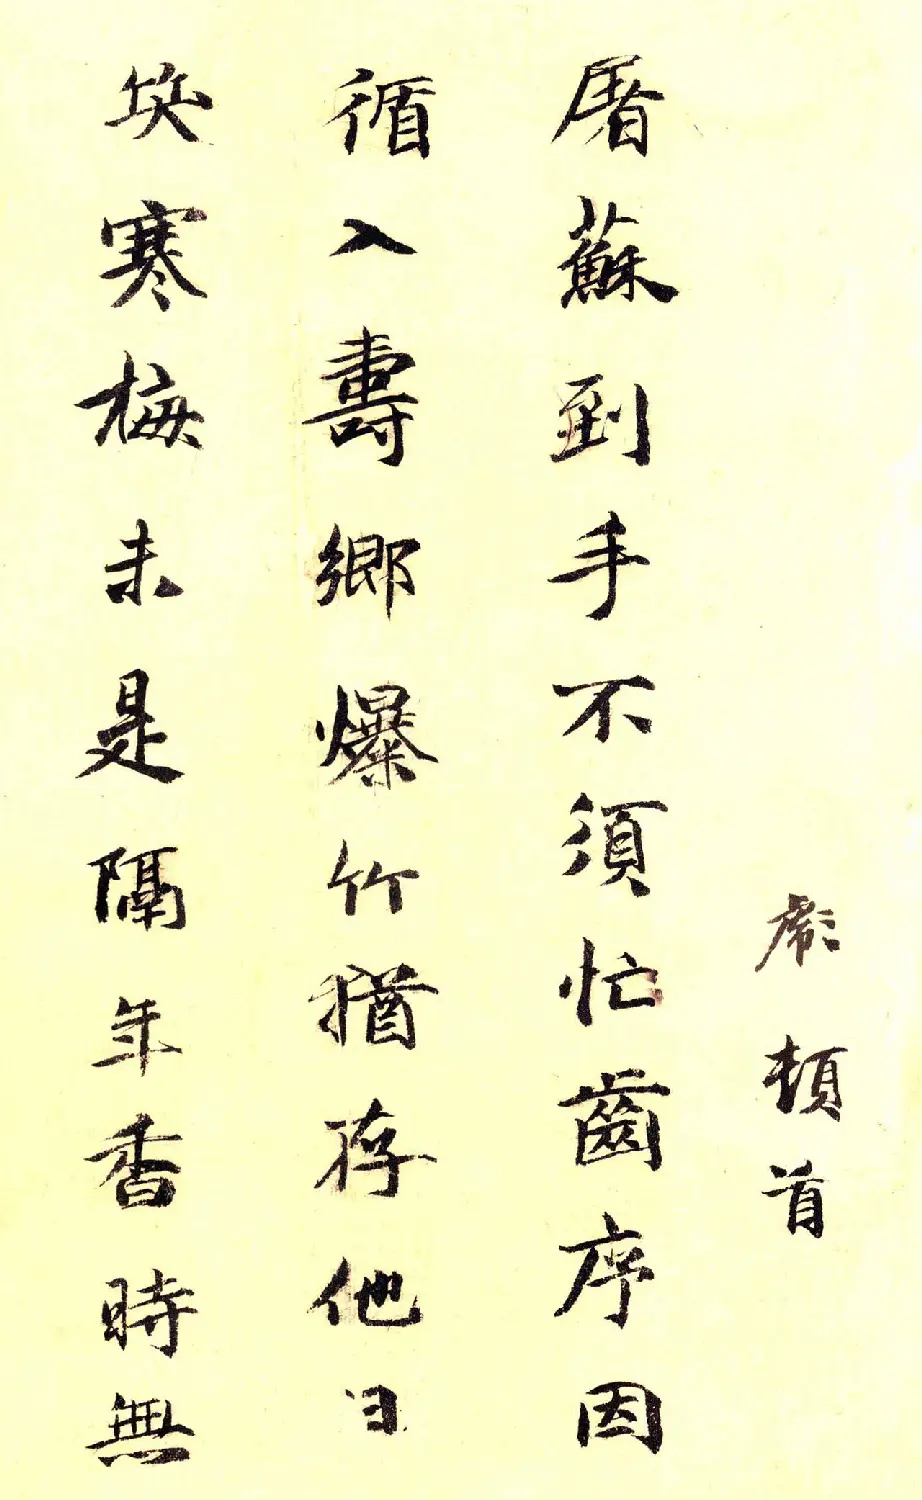 頓首
屠蘇到手不須忙齒序因
循入壽鄉爆竹猶存他日
笑寒梅未是隔年香時無